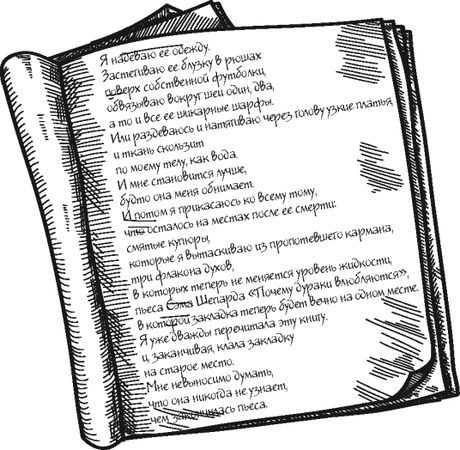 Я надеваю ее одежду.
Застегиваю ее блузку в рюшах
поверх собственной футболки,
обвязываю вокруг шеи один, два,
а то и все ее шикарные шарфы.
Или раздеваюсь и натягиваю через голову узкие платья,
и ткань скользит
по моему телу, как вода.
И мне становится лучше,
будто она меня обнимает.
И потом я прикасаюсь ко всему тому,
что осталось на местах после ее смерти:
смятые купюры,
которые я вытаскиваю из пропотевшего кармана,
три флакона духов,
в которых теперь не меняется уровень жидкости,
пьеса Сэма Шепарда «Почему дураки влюбляются»,
в которой закладка теперь будет вечно на одном месте.
Я уже дважды перечитала эту книгу.
и, заканчивая, клала закладку
на старое место.
Мне невыносимо думать,
что она никогда не узнает,
чем закончилась пьеса.